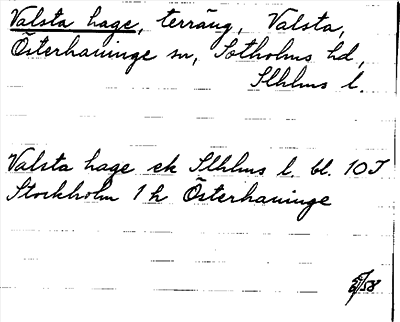 Valsta hage, terräng, Valsta,
Österhaninge sn, Sotholms hd,
Sthlms l.
Valsta hage ek Sthlms l. bl. 10 I
Stockholm 1 h Österhaninge
/58